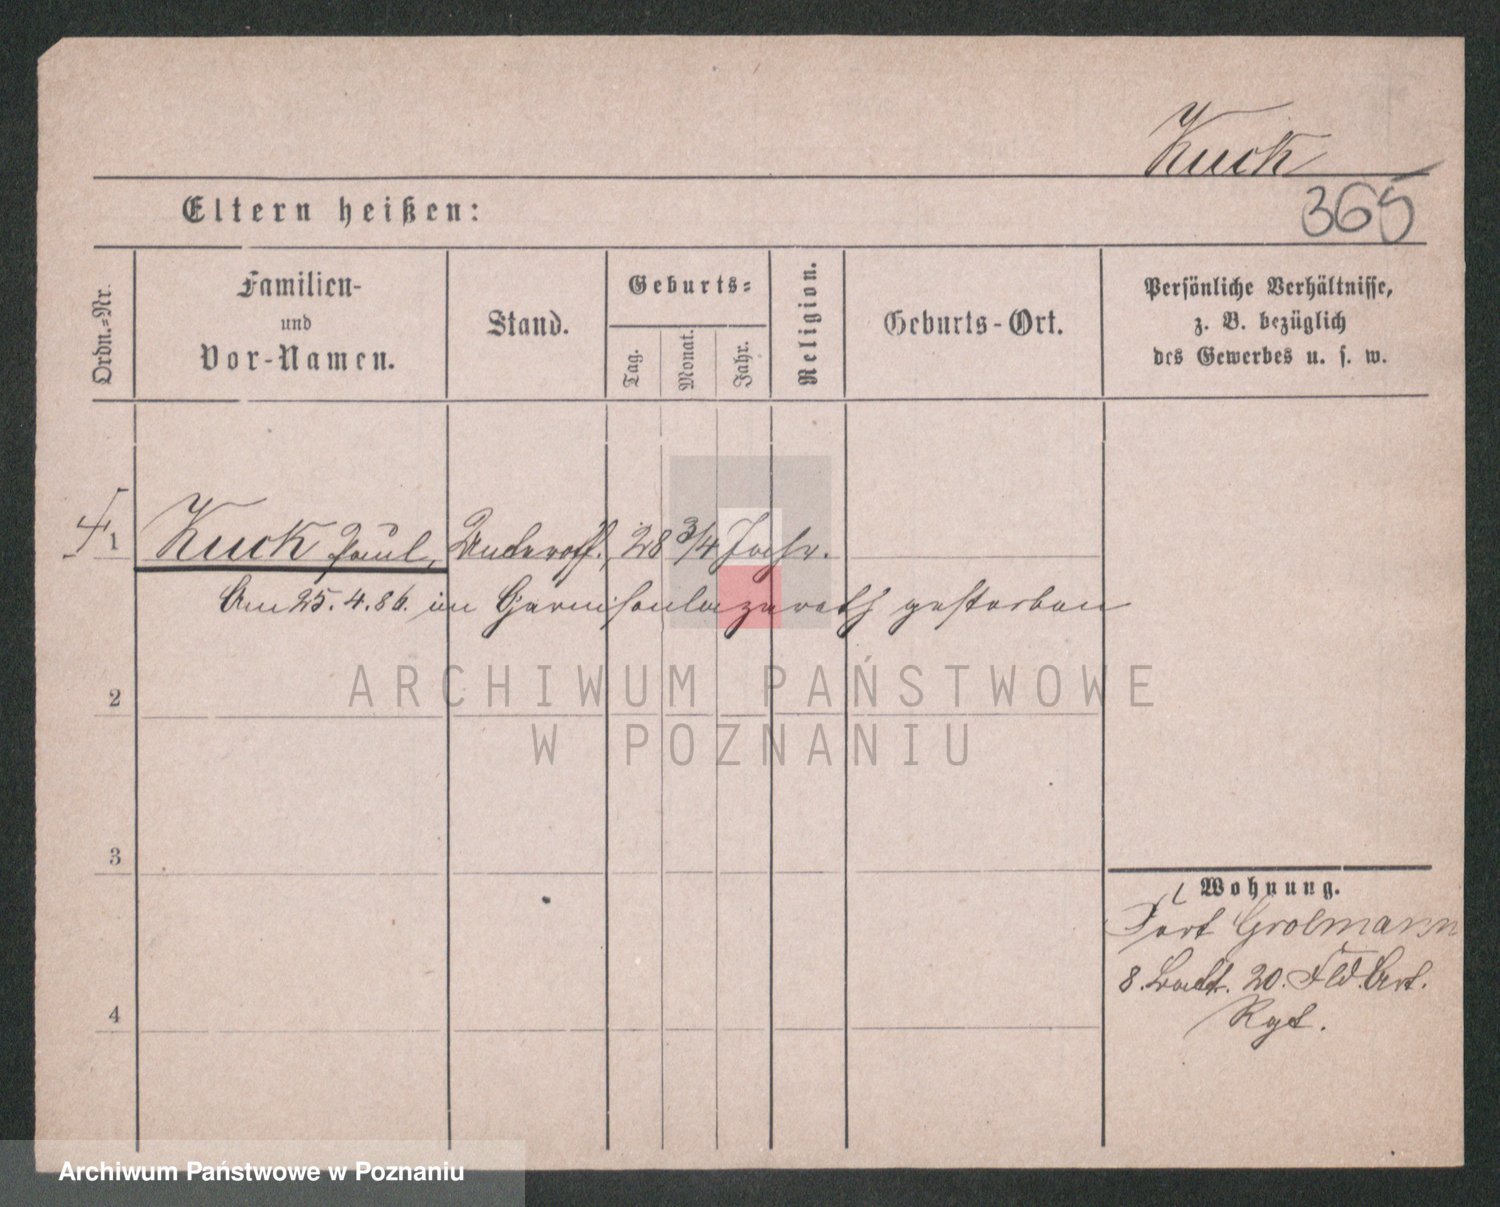 Kuck
365
Eltern heißen:
Ordn.=Nr.
Familien-
und
Vor-Namen.
Stand.
Geburts=
Tag.
Monat.
Jahr.
Religion.
Geburts-Ort.
Persönliche Verhältnisse,
z. B. bezüglich
des Gewerbes u. s. w.
1 Kuck Paul, Unteroff. 28 3/4 Jahr.
Am 25.4.86. im Garnisonlazareth gestorben
ARCHIWUM PAŃSTWOWE
W POZNANIU
2
3
4
Wohnung.
Fort Grolmann
8. Batt. 20. Fld. Art.
Rgt.
Archiwum Państwowe w Poznaniu